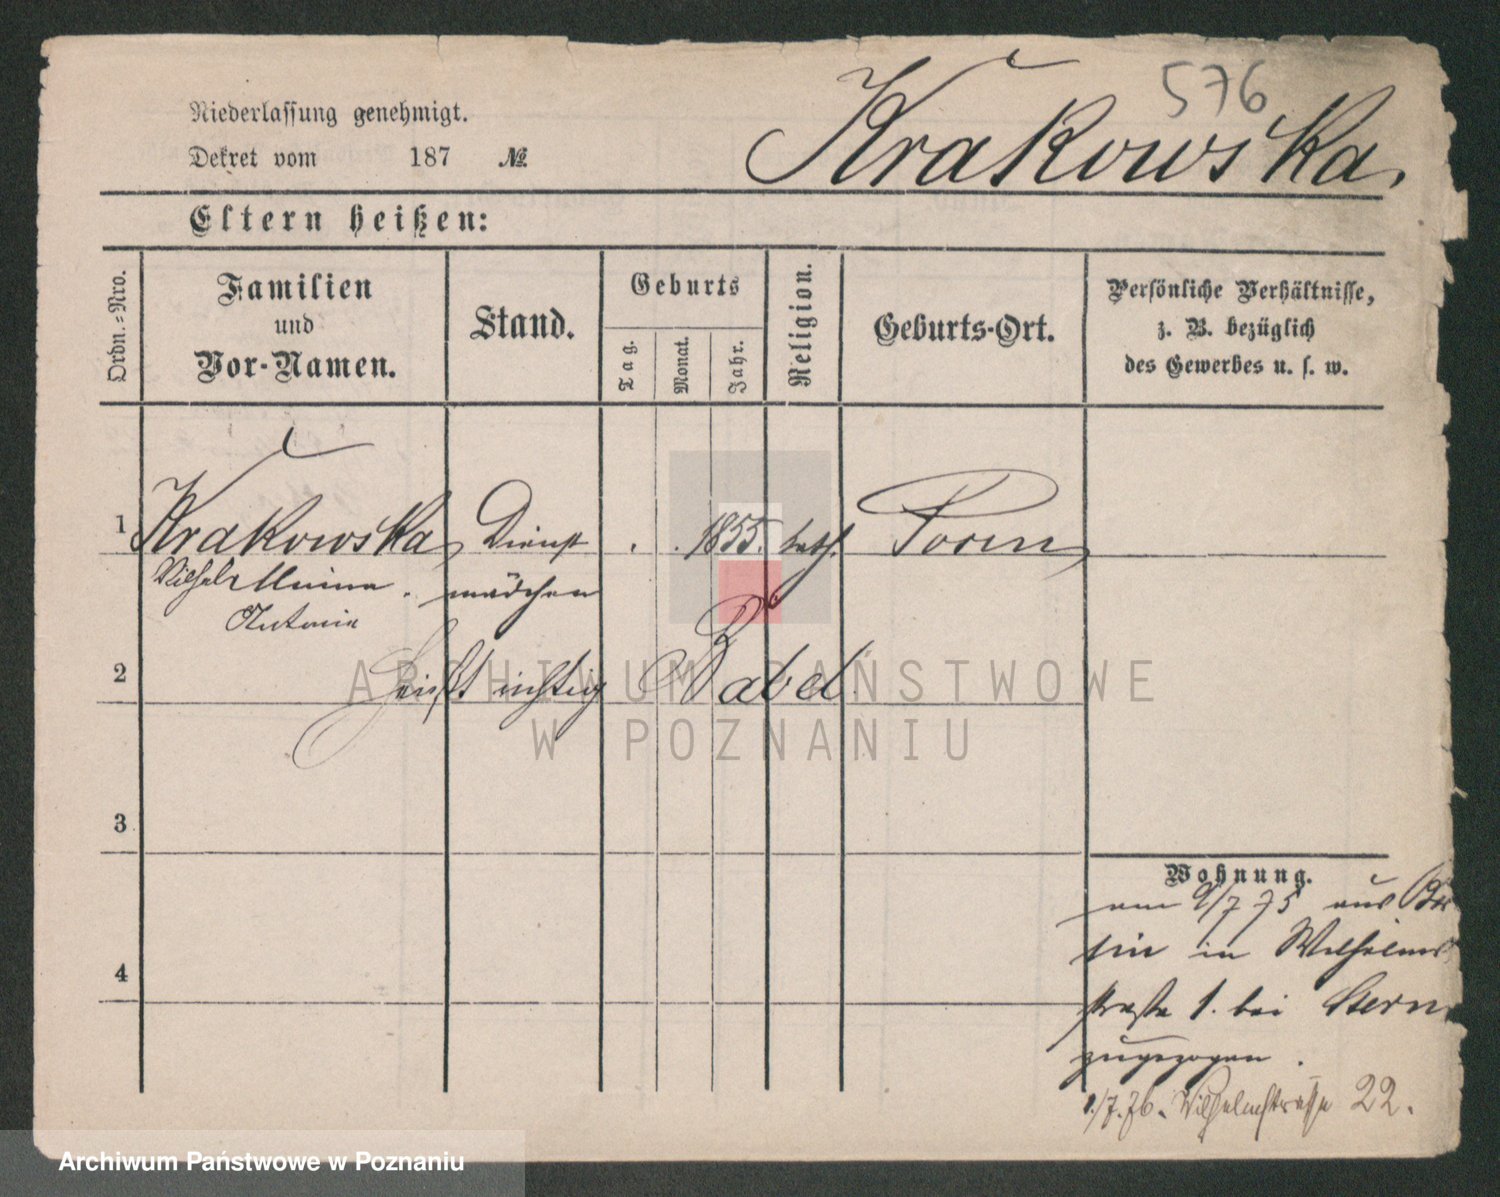 576
Niederlassung genehmigt.
Dekret vom 187 №
Krakowska.
Eltern heißen:
Ordn.-Nro.
Familien
und
Vor-Namen.
Stand.
Geburts
Tag.
Monat.
Jahr.
Religion.
Geburts-Ort.
Persönliche Verhältnisse,
z. B. bezüglich
des Gewerbes u. s. w.
1 Krakowska, Dienst . . 1855. kath. Posen
mädchen
Antonie
2 heißt richtig Babel.
ARCHIWUM PAŃSTWOWE
W POZNANIU
3
4
Wohnung.
am 9/7 75 aus Ber
lin in Wilhelms
straße 1. bei Stern
zugezogen.
1/7.76. Wilhelmstrasse 22.
Archiwum Państwowe w Poznaniu